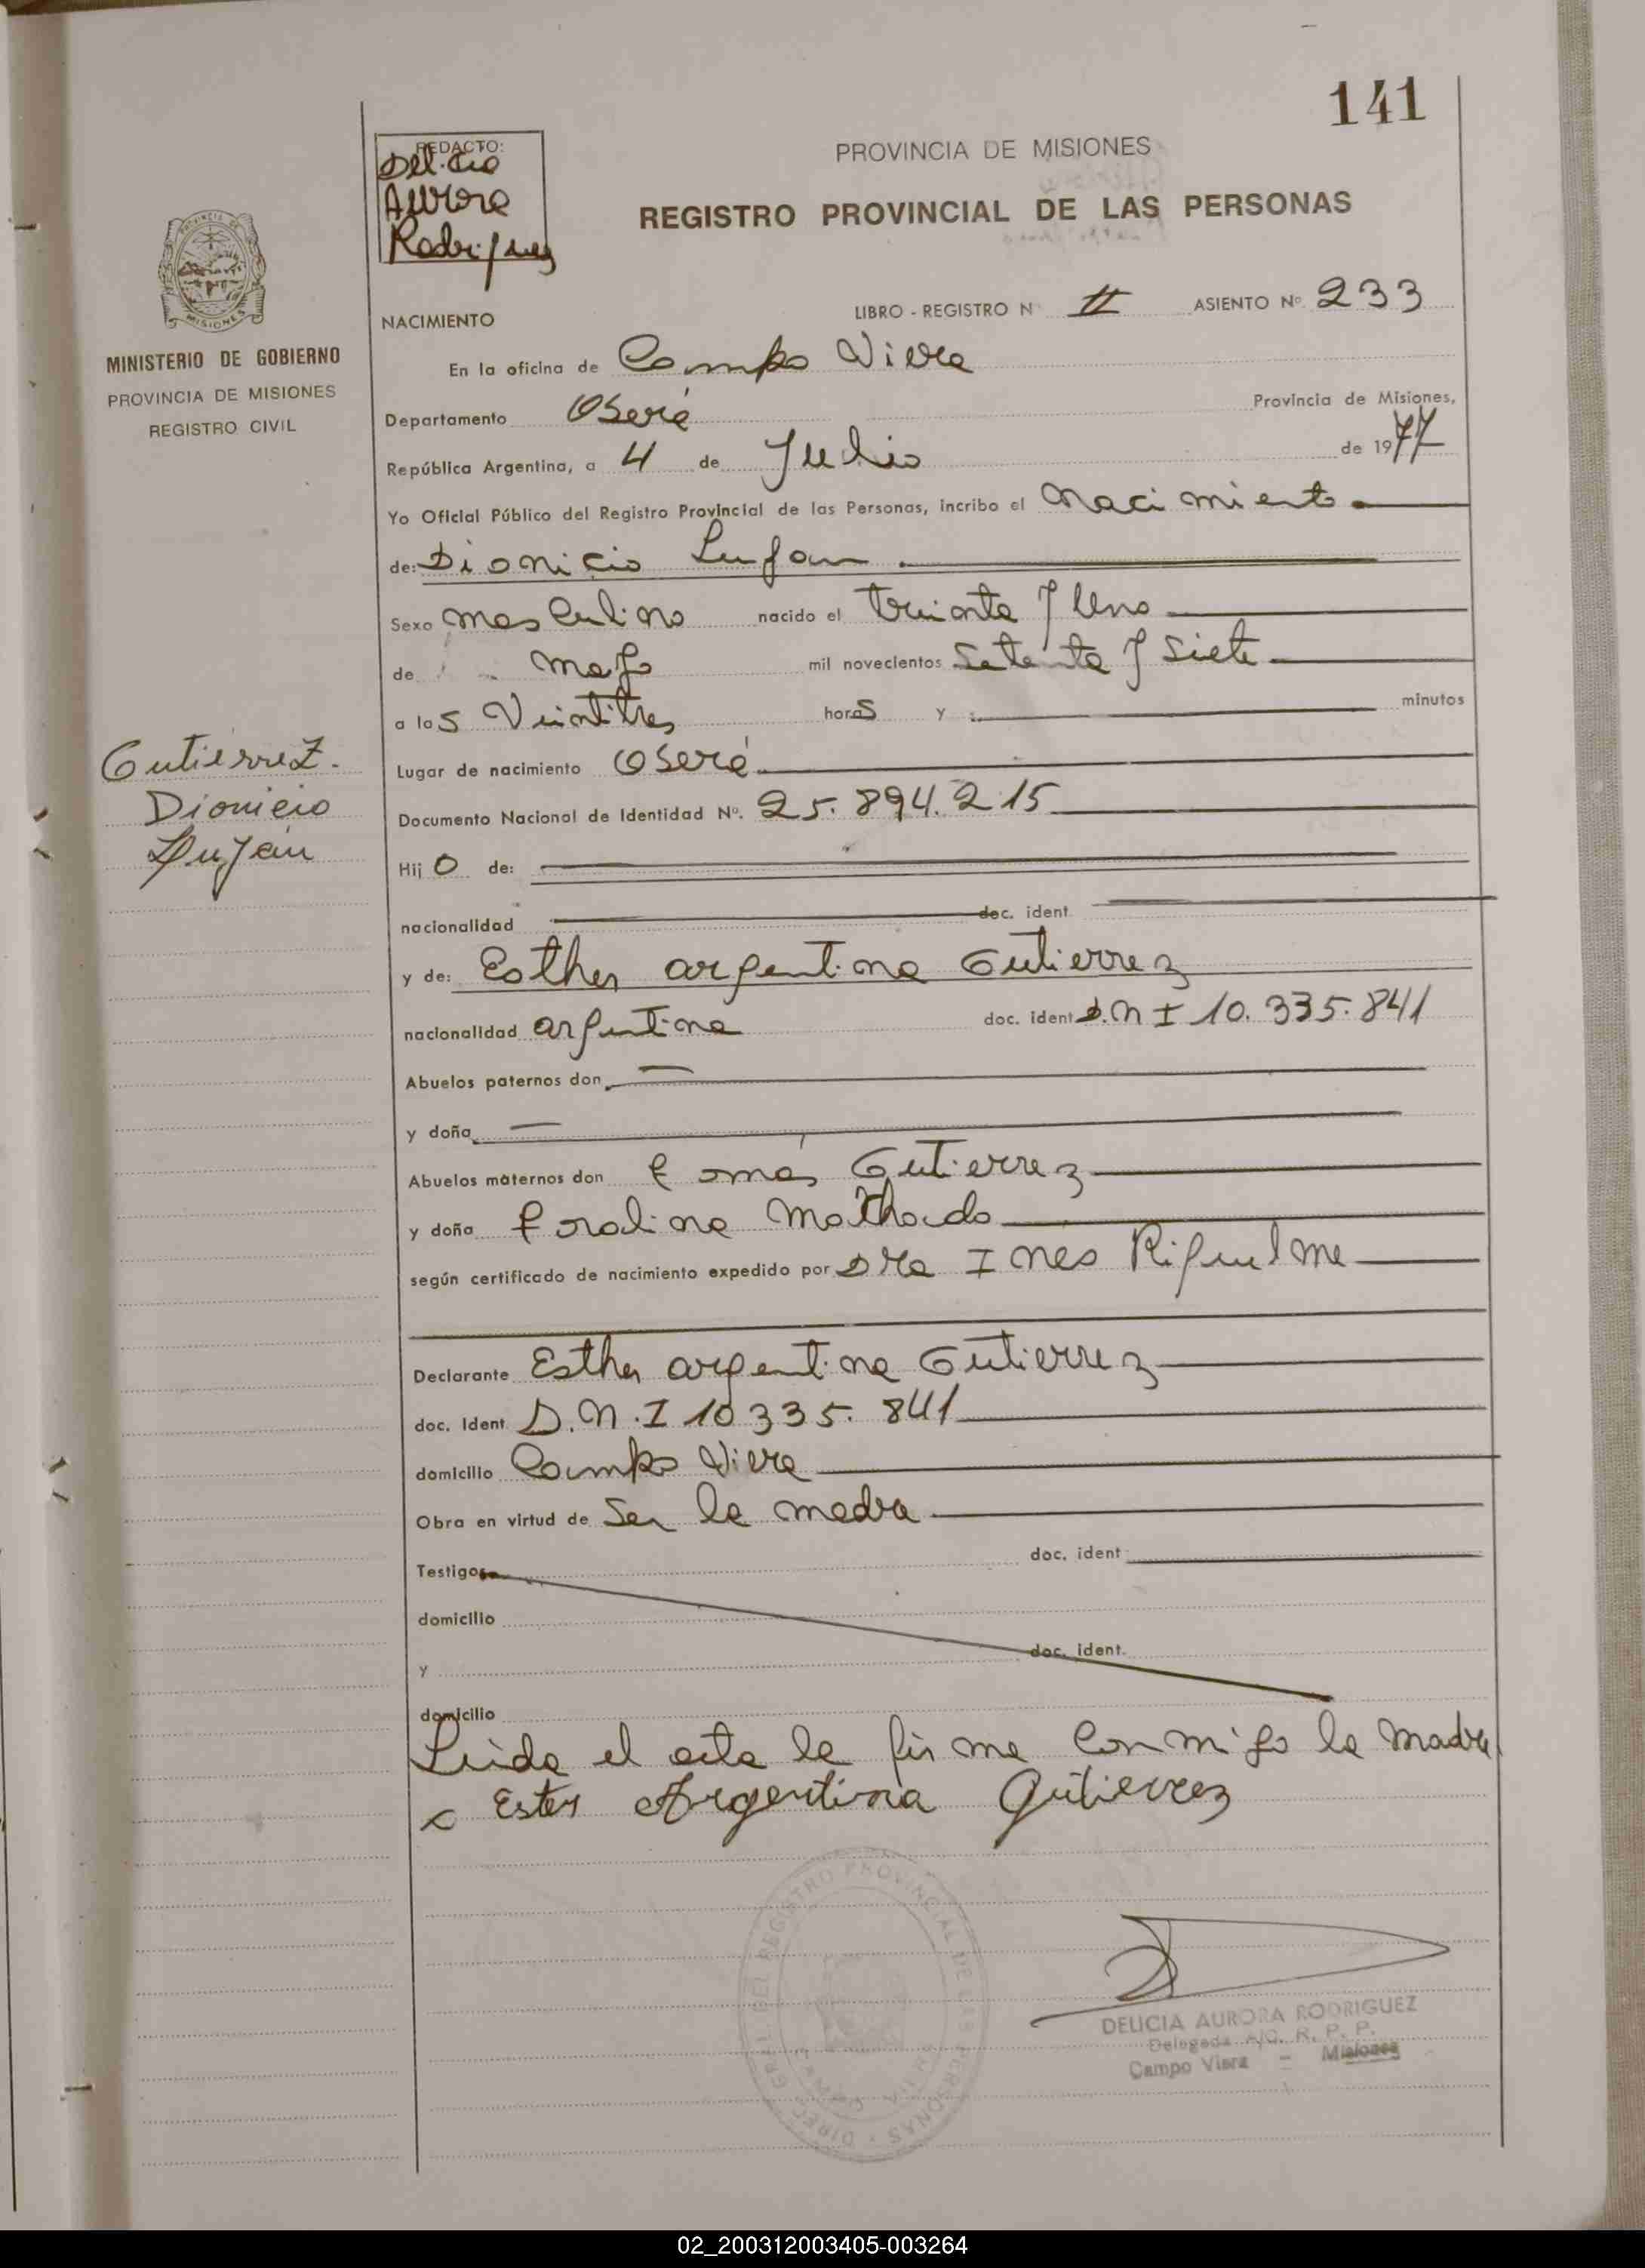 141
REDACTO:
Delicia
Aurora
Rodriguez
PROVINCIA DE MISIONES
REGISTRO PROVINCIAL DE LAS PERSONAS
MISIONES
MINISTERIO DE GOBIERNO
PROVINCIA DE MISIONES
REGISTRO CIVIL
NACIMIENTO
LIBRO - REGISTRO N II ASIENTO Nº. 233
En la oficina de Campo Viera
Departamento Oberá Provincia de Misiones,
República Argentina, a 4 de Julio de 1977
Yo Oficial Público del Registro Provincial de las Personas, incribo el Nacimiento
de: Dionicio Lujan
Sexo masculino nacido el treinta y uno
de mayo mil novecientos setenta y siete
a las Veintitres horas y minutos
Lugar de nacimiento Oberá
Documento Nacional de Identidad Nº. 25.894.215
Gutierrez.
Dionicio
Lujan
Hijo de:
nacionalidad doc. ident.
y de: Esther argentina Gutierrez
nacionalidad argentina doc. ident D.N I 10.335.841
Abuelos paternos don
y doña
Abuelos maternos don Tomas Gutierrez
y doña Machado
según certificado de nacimiento expedido por Dra Ines Riquelme
Declarante Esther argentina Gutierrez
doc. Ident. D.N.I 10 335. 841
domicilio Campo Viera
Obra en virtud de Ser la madre
Testigos doc. ident
domicilio
y doc. ident.
domicilio
Leida el acta la firma conmigo la madre
x Ester Argentina Gutierrez
DIRECC. GRAL. DEL REGISTRO PROVINCIAL DE LAS PERSONAS
DELICIA AURORA RODRIGUEZ
Delegada A/C. R. P. P.
Campo Viera - Misiones
02_200312003405-003264